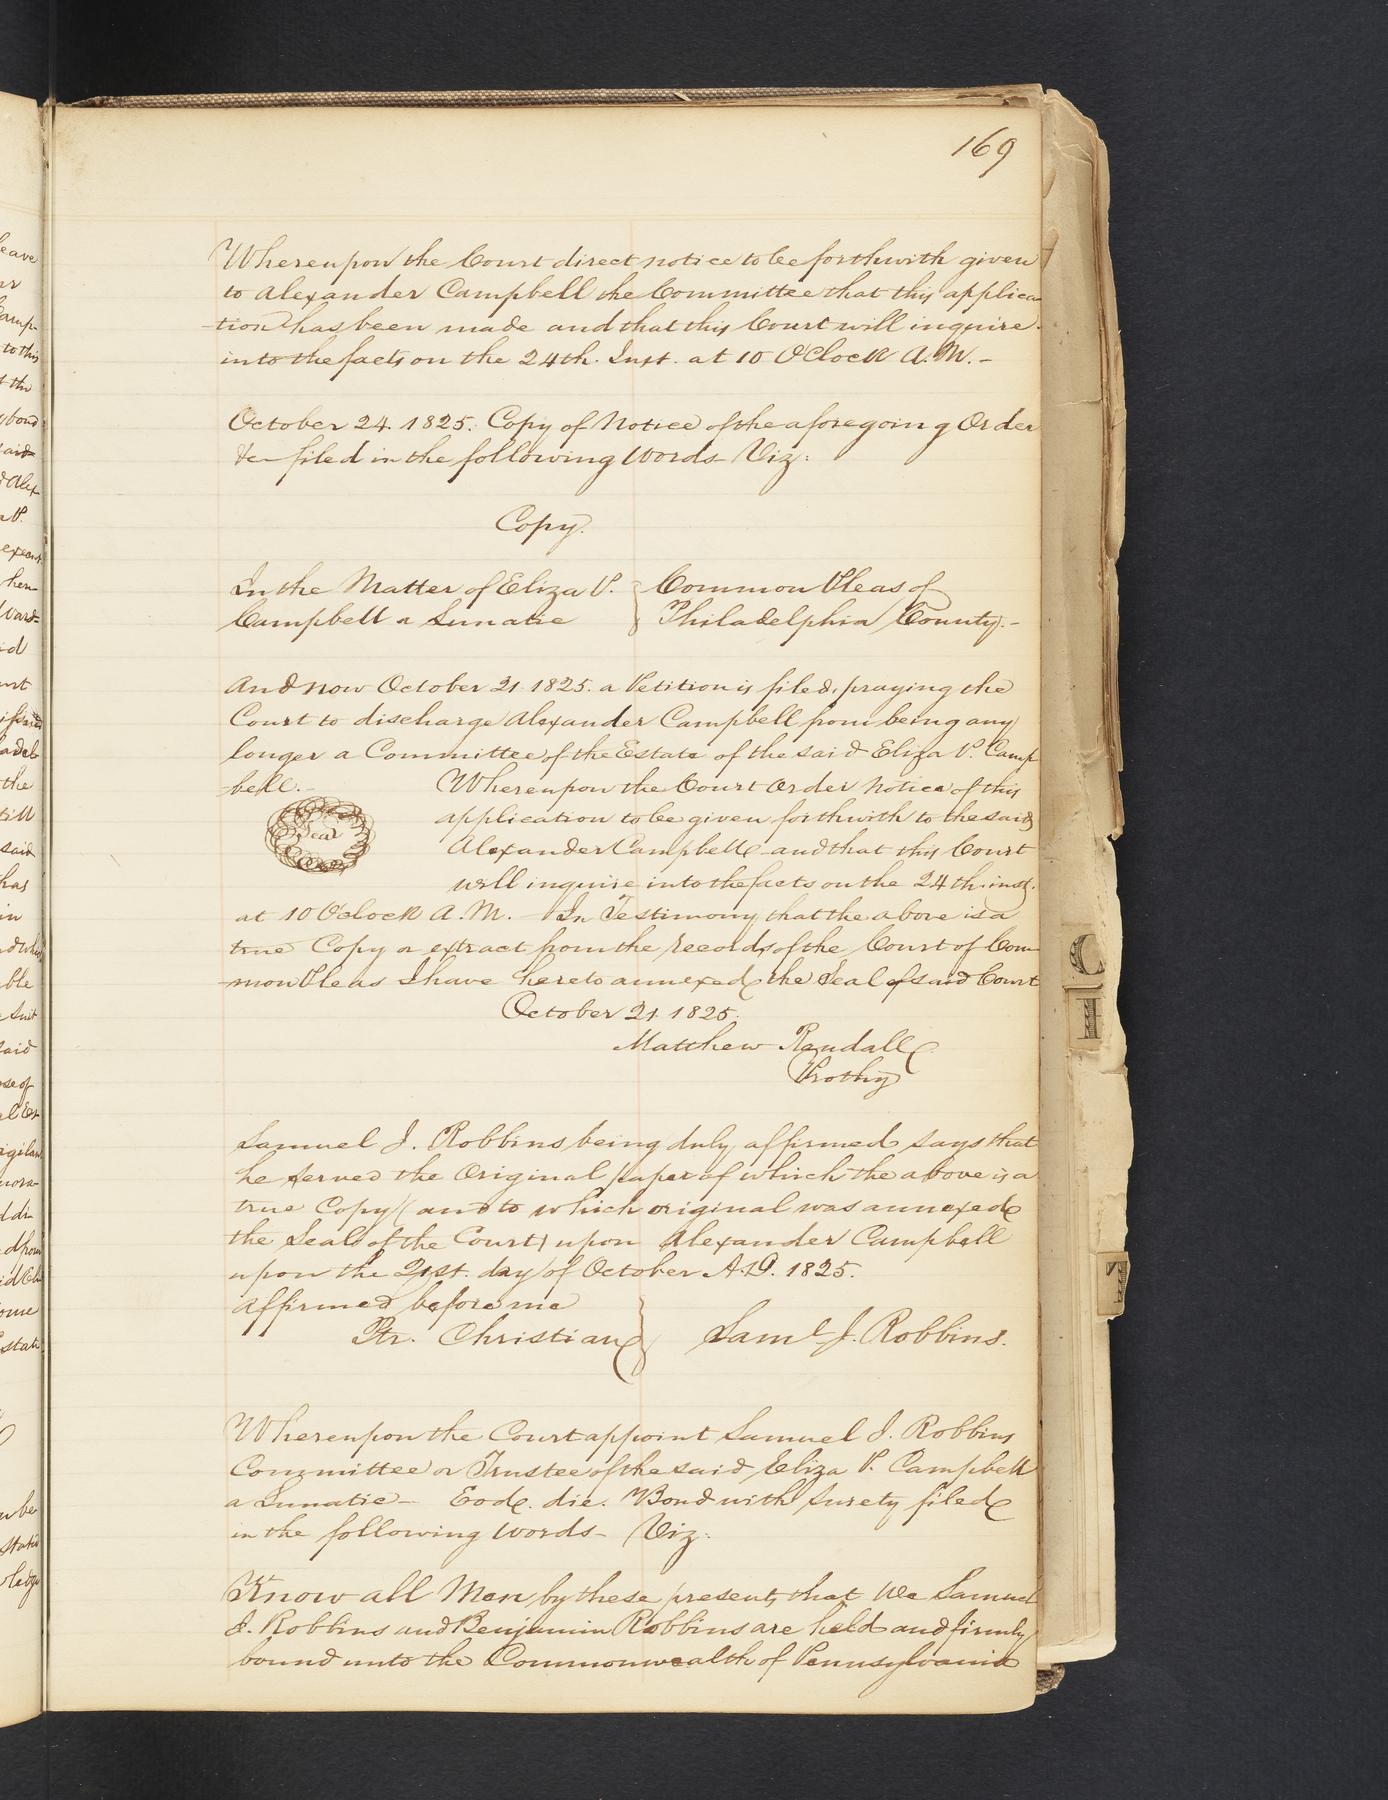 169
Whereupon the Court direct notice to be forthwith given
to Alexander Campbell the Committee that this applica
-tion has been made and that this Court will inquire
into the facts on the 24th. Inst. at 10 O'Clock A.M. -
October 24. 1825. Copy of Notice of the aforegoing Order
&c filed in the following words - Viz:
Copy.
In the Matter of Eliza P. } Common Pleas of
Campbell a Lunatic } Philadelphia County. -
And now October 21 1825. a Petition is filed, praying the
Court to discharge Alexander Campbell from being any
longer a Committee of the Estate of the said Eliza P. Camp
-bell. - Whereupon the Court Order Notice of this
application to be given forthwith to the said
Seal
Alexander Campbell - and that this Court
will inquire into the facts on the 24th inst.
at 10 O'Clock A.M. - In Testimony that the above is a
true Copy or extract from the records of the Court of Com
-mon Pleas I have hereto annexed the Seal of said Court
October 21 1825.
Matthew Randall
Prothy
Samuel J. Robbins being duly affirmed says that
he served the Original paper of which the above is a
true Copy (and to which original was annexed
the Seal of the Court) upon Alexander Campbell
upon the 21st. day of October A.D. 1825.
affirmed before me }
Ptr. Christian } Saml J. Robbins.
Whereupon the Court appoint Samuel J. Robbins
Committee or Trustee of the said Eliza P. Campbell
a Lunatic - Eode. die. Bond with Surety filed
in the following words - Viz:
Know all Men by these presents, that We Samuel
J. Robbins and Benjamin Robbins are held and firmly
bound unto the Commonwealth of Pennsylvania